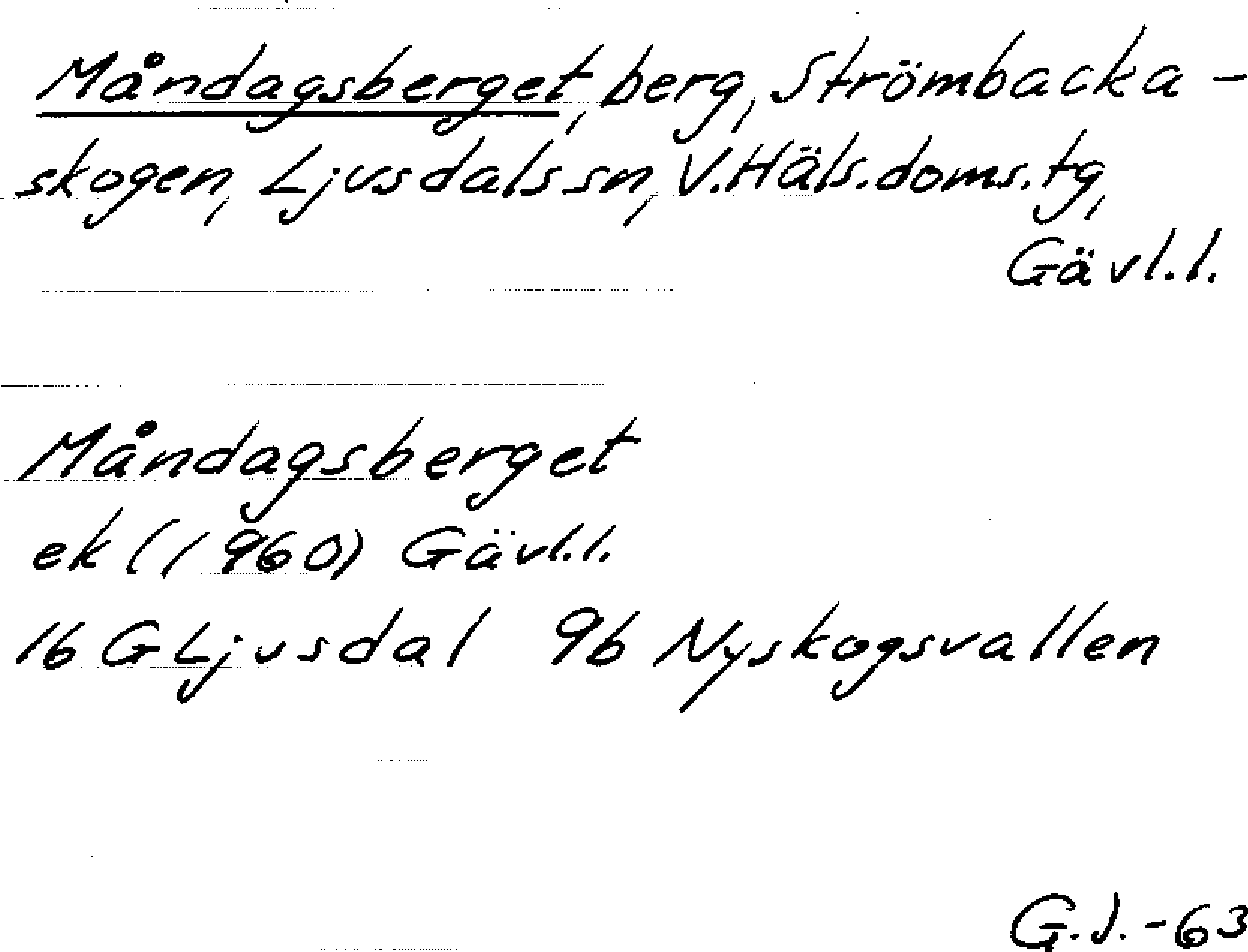 Måndagsberget, berg, Strömbacka-
skogen, Ljusdals sn, V. Häls. doms. tg,
Gävl. l.
Måndagsberget
ek (1960) Gävl. l.
16 G Ljusdal 9b Nyskogsvallen
G.J. -63